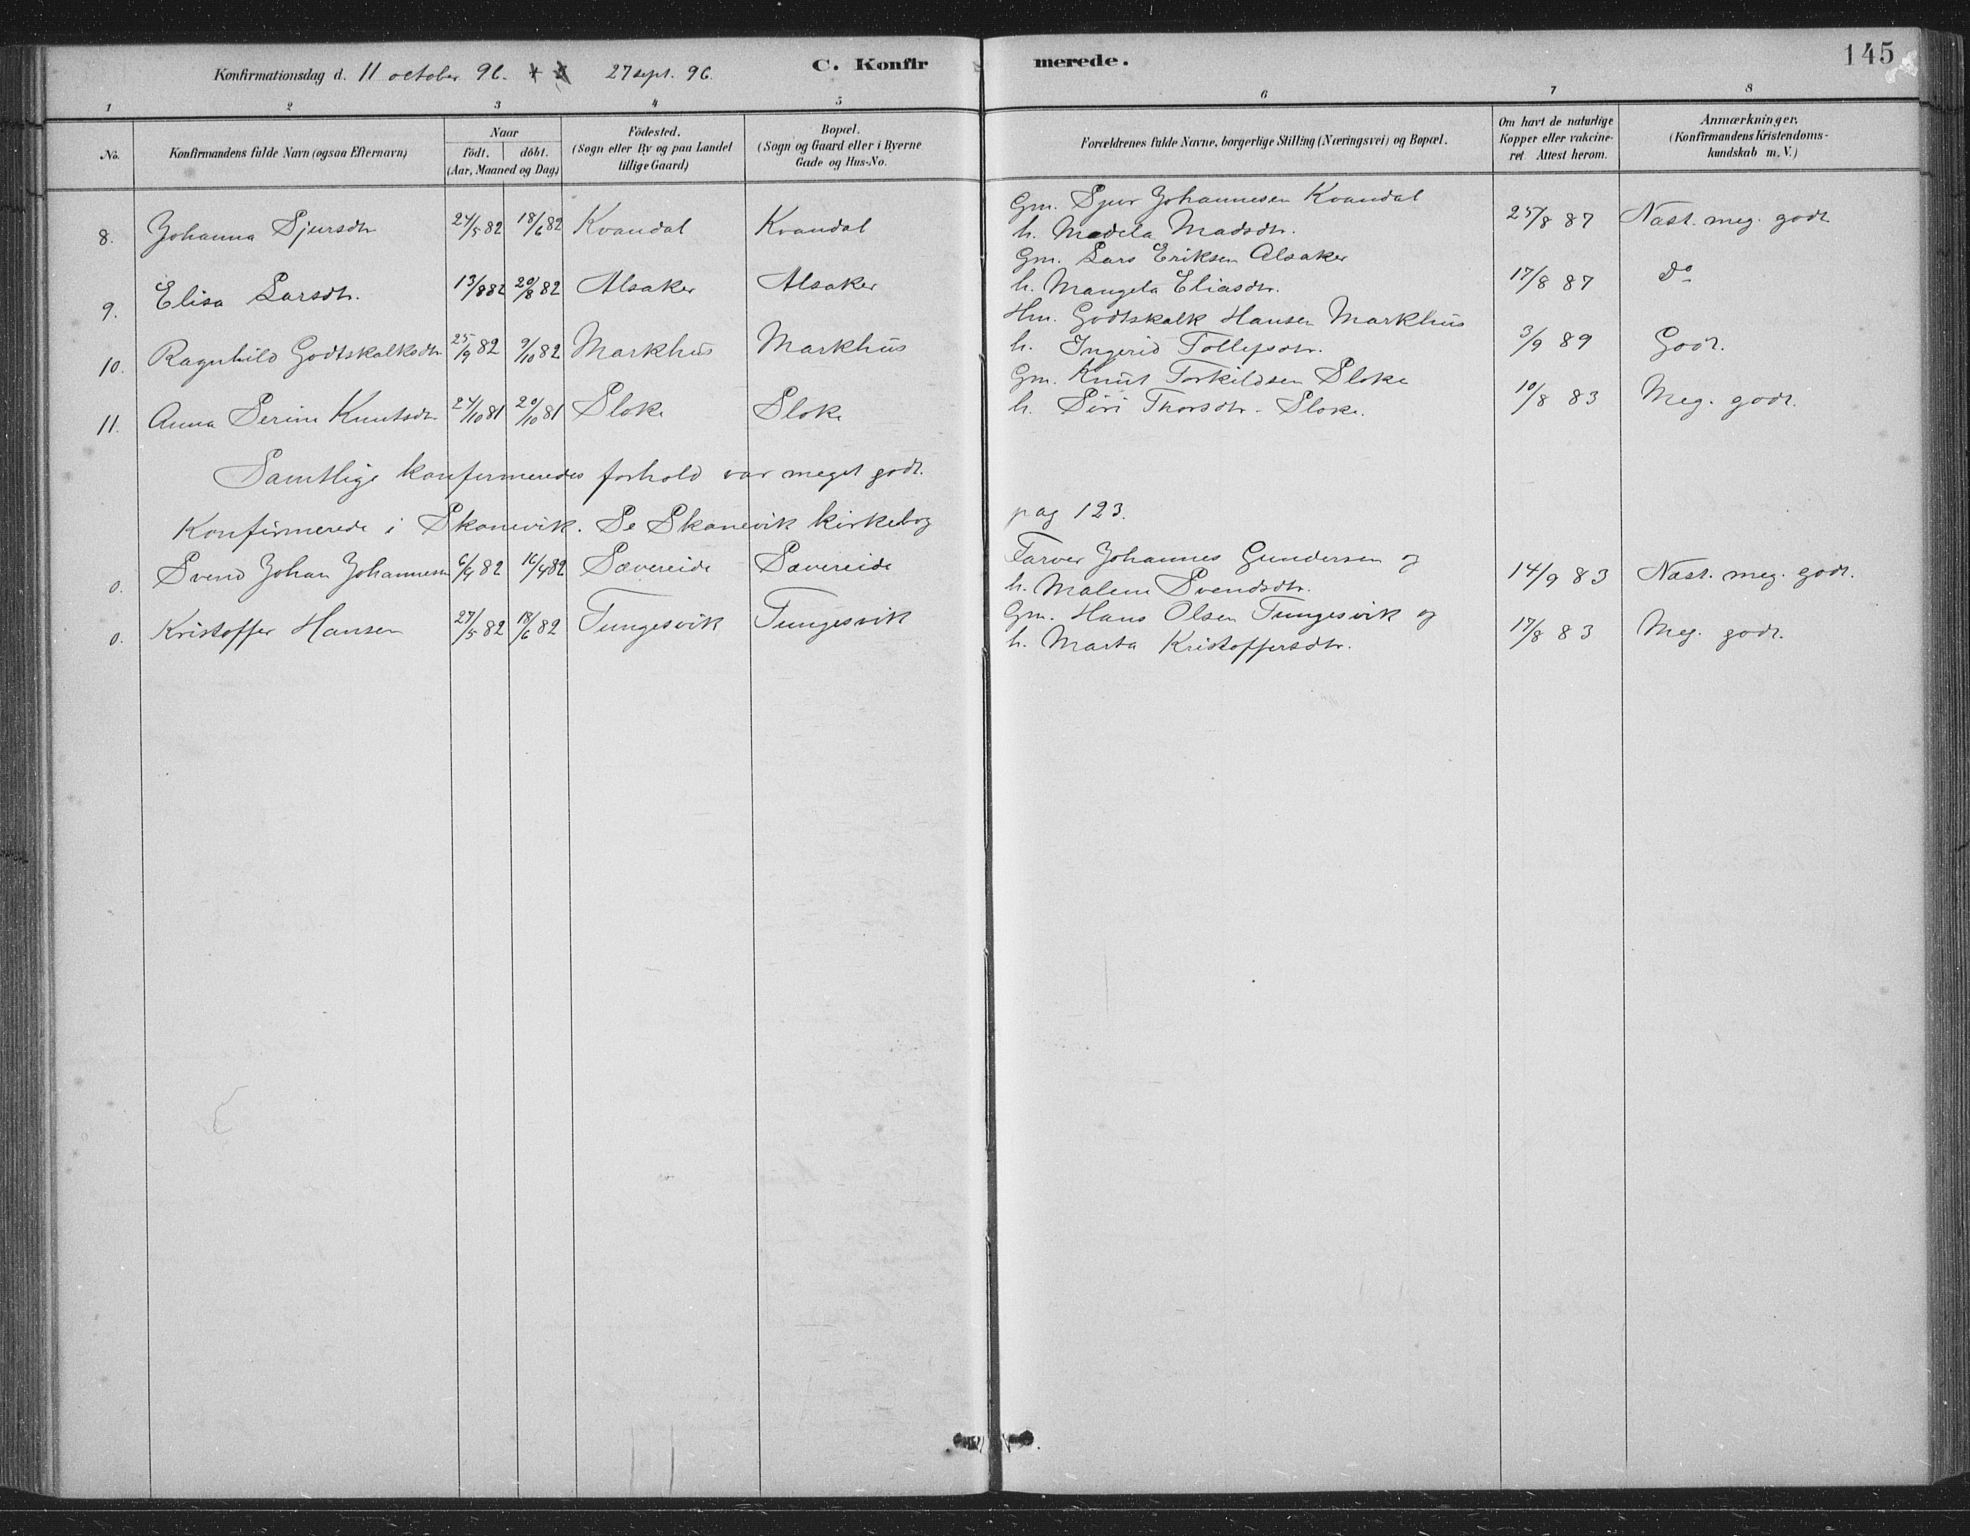 145
Konfirmationsdag d. 11 october 96. 27 sept. 96. C. Konfirmerede.
1 2 3 4 5 6 7 8
No. Konfirmandens fulde Navn (ogsaa Efternavn) Naar födt. döbt. (Aar, Maaned og Dag) Födested. (Sogn eller By og paa Landet tillige Gaard) Bopæl. (Sogn og Gaard eller i Byerne Gade og Hus-No. Forældrenes fulde Navne, borgerlige Stilling (Næringsvei) og Bopæl. Om havt de naturlige Kopper eller vakcineret. Attest herom. Anmærkninger, (Konfirmandens Kristendomskundskab m. V.)
8. Johanna Sjursdtr 24/5 82 18/6 82 Kvandal Kvandal Gm. Sjur Johannesen Kvandal
h. Madela Madsdtr. 25/8 87 Nast. meg. godt
9. Elisa Larsdtr. 13/8 82 20/8 82 Alsaker Alsaker Gm. Lars Eriksen Alsaker
h. Mangela Eliasdtr. 17/8 87 Do
10. Ragnhild Godtskalksdtr 25/9 82 9/10 82 Markhus Markhus Hm. Godtskalk Hansen Markhus
h. Ingerid Tollefsdtr. 3/9 89 Godt.
11. Anna Serine Knutsdtr 24/10 81 29/10 81 Sloke Sloke Gm. Knut Torkildsen Sloke
h. Siri Thorsdtr. Sloke. 10/8 83 Meg. godt.
Samtlige konfirmeredes forhold var meget godt.
Konfirmerede i Skonevik. Se Skanevik kirkebog pag 123.
0. Svend Johan Johannesen 6/4 82 16/4 82 Sævereide Sævereide Farver Johannes Gundersen og
h. Malene Svendsdtr. 14/9 83 Nast. meg. godt.
0. Kristoffer Hansen 27/5 82 18/6 82 Tungesvik Tungesvik Gm. Hans Olsen Tungesvik og
h. Marta Kristoffersdtr. 17/8 83 Meg. godt.